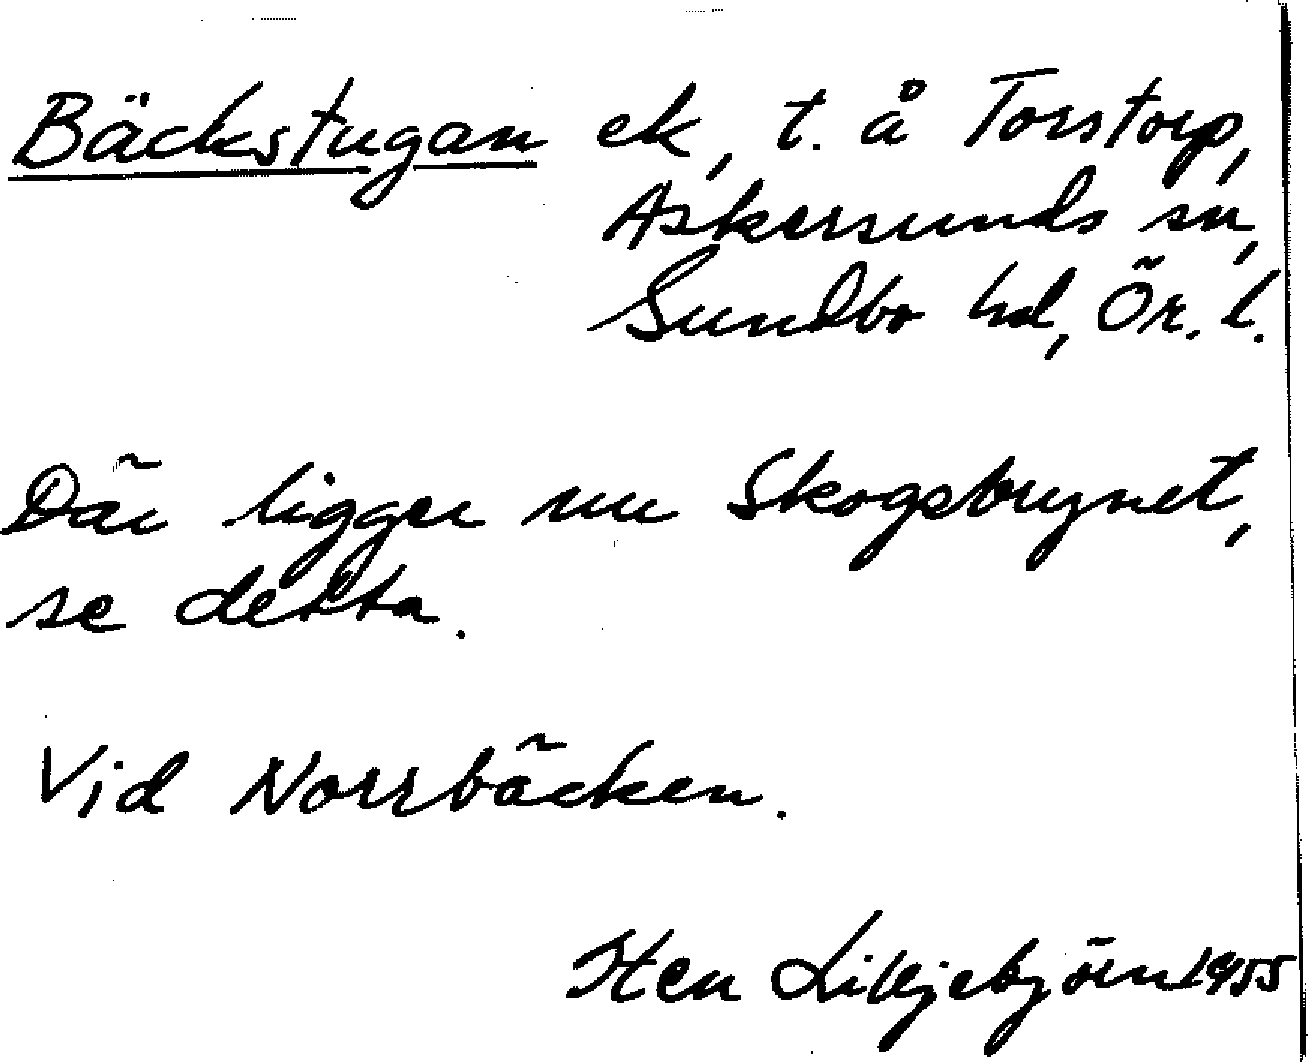 Bäckstugan ek, t. å Torstorp,
Askersunds sn,
Sundbo hd, Ör. l.
Där ligger nu Skogsbrynet,
se detta.
Vid Norrbäcken.
Sten Lilljebjörn 1955